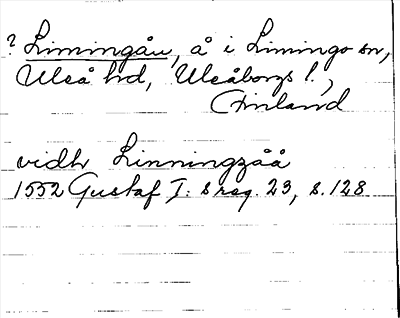 ? Limingåu, å i Limingo sn,
Uleå hd, Uleåborgs l.,
Finland
vidh Linningzåå
1552 Gustaf I: s reg. 23, s. 128